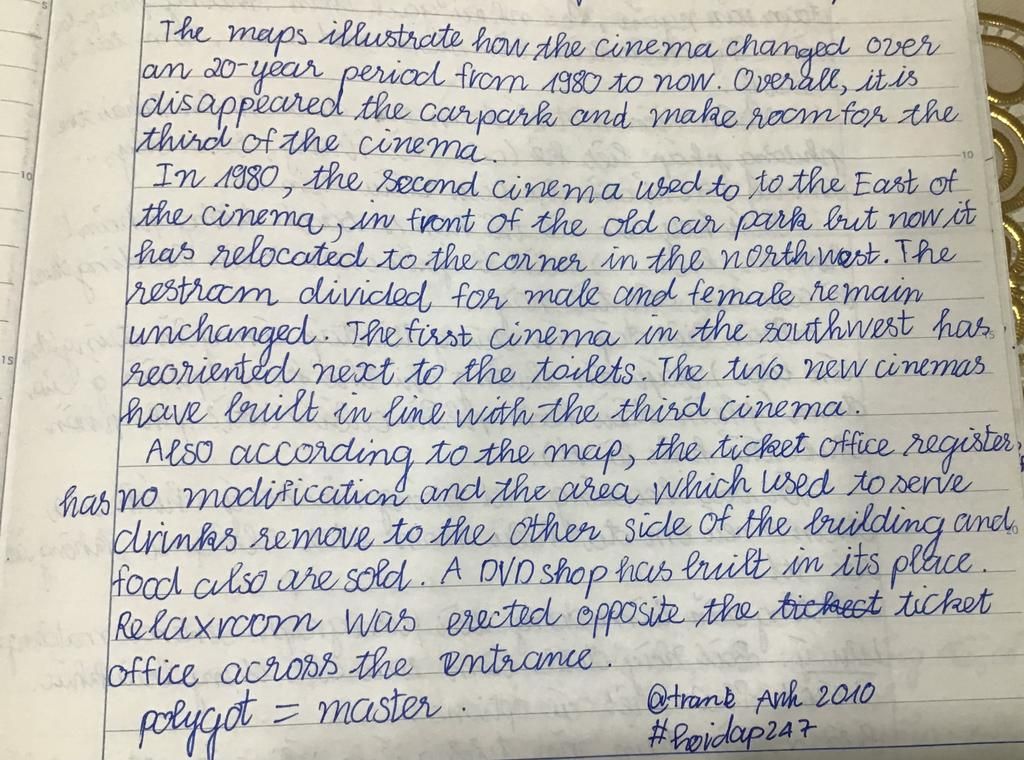 The maps illustrate how the cinema changed over
an 20-year period from 1980 to now. Overall, it is
disappeared the carpark and make room for the
third of the cinema.
In 1980, the second cinema used to to the East of
the cinema, in front of the old car park but now it
has relocated to the corner in the northwest. The
restroom divided for male and female remain
unchanged. The first cinema in the southwest has
reoriented next to the toilets. The two new cinemas
have built in line with the third cinema.
Also according to the map, the ticket office register,
has no modification and the area which used to serve
drinks remove to the other side of the building and
food also are sold. A DVD shop has built in its place.
Relaxroom was erected opposite the tickect ticket
office across the entrance.
polygot = master.
@trank Anh 2010
#hoidap247
10
10
15